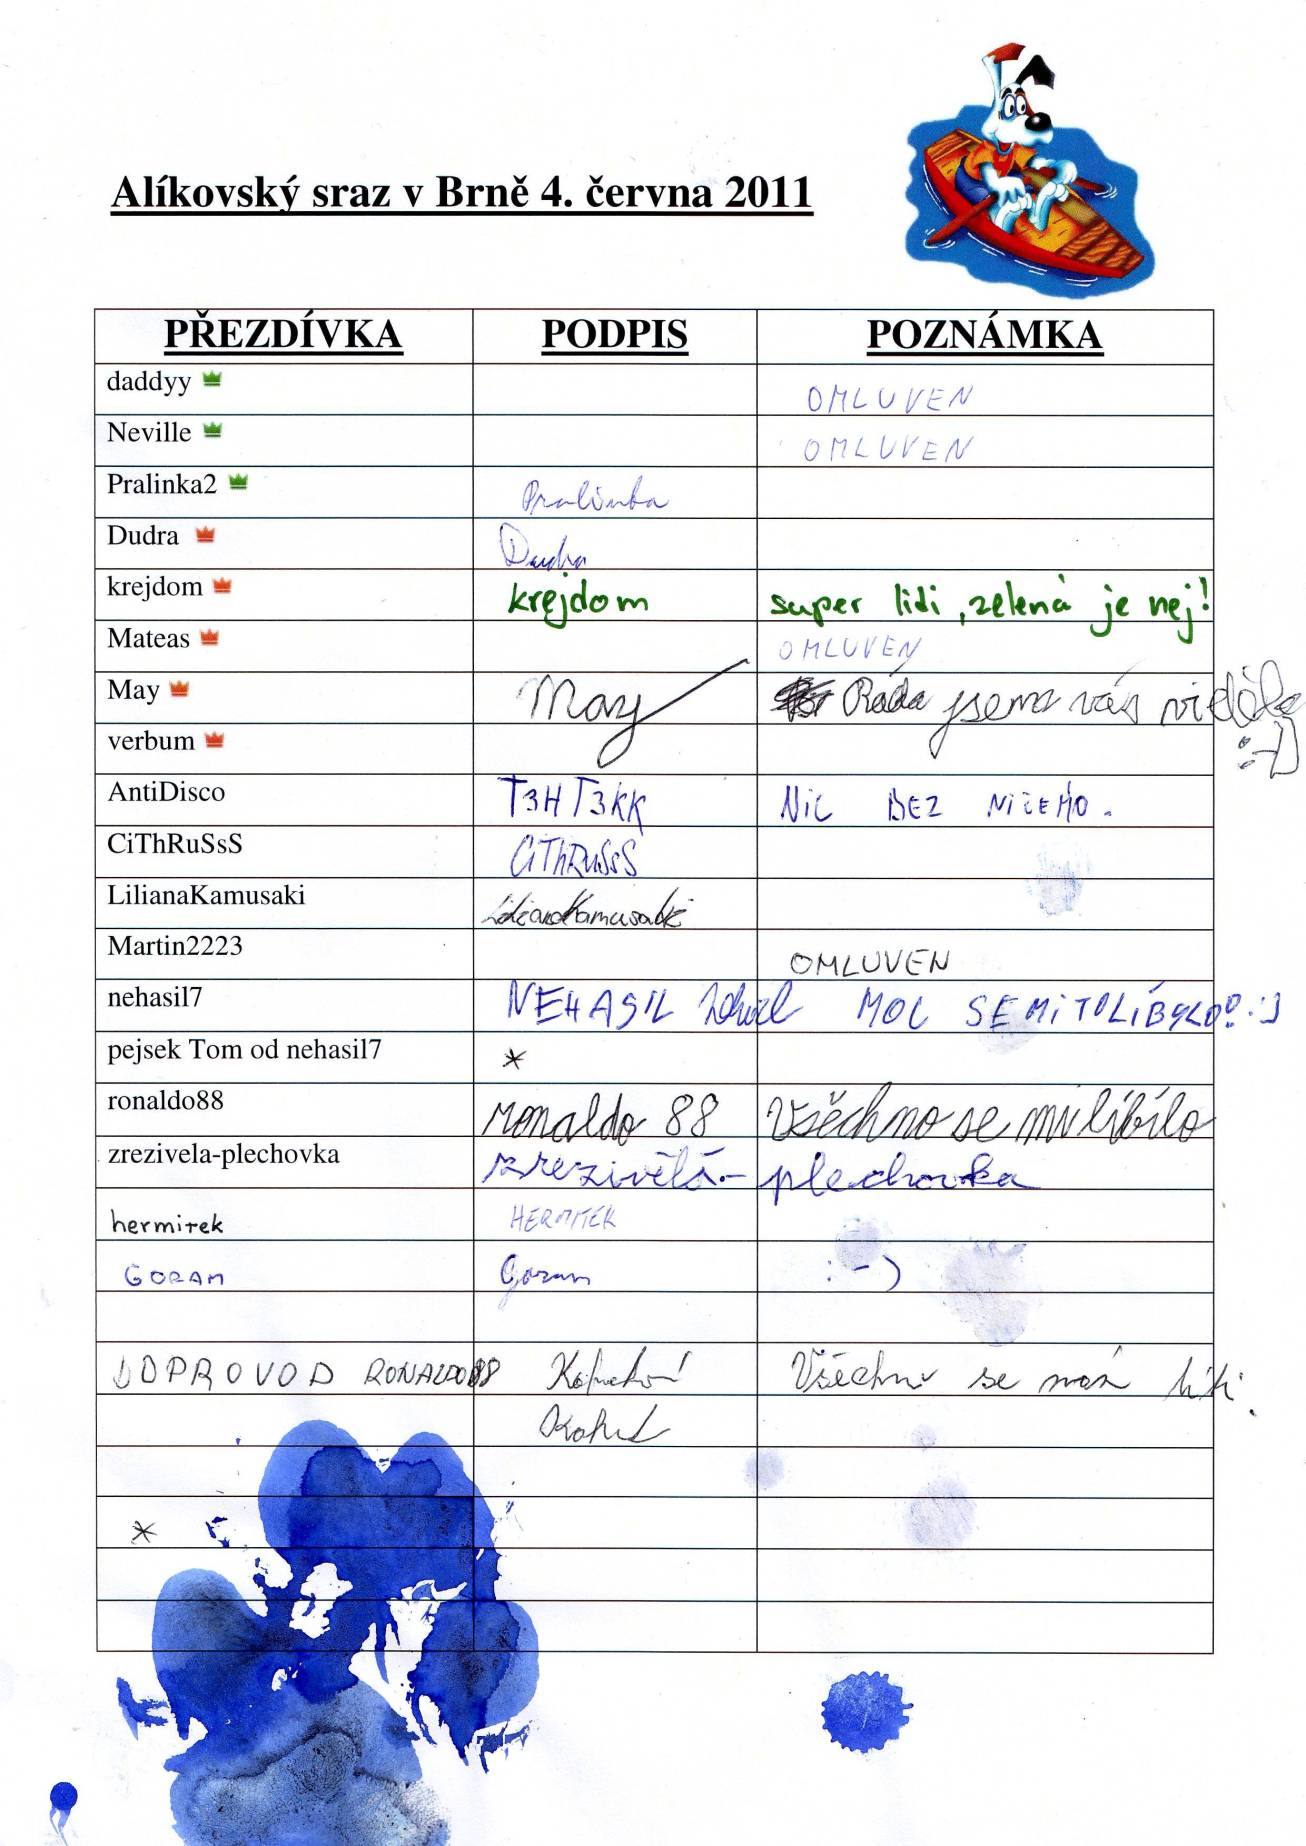 Alíkovský sraz v Brně 4. června 2011
PŘEZDÍVKA PODPIS POZNÁMKA
daddyy OMLUVEN
Neville OMLUVEN
Pralinka2 Pralinka
Dudra Dudra
krejdom krejdom super lidi, zelená je nej!
Mateas OMLUVEN
May May Ráda jsem vás viděla :-D
verbum
AntiDisco T3HT3KK NIC BEZ NIČEHO.
CiThRuSsS CiThRuSsS
LilianaKamusaki LilianaKamusaki
Martin2223 OMLUVEN
nehasil7 NEHASIL MOC SE MI TO LÍBYLO!! :)
pejsek Tom od nehasil7 *
ronaldo88 ronaldo 88 Všechno se mi líbilo
zrezivela-plechovka zrezivělá-plechovka
hermitek HERMITEK
GORAM Goram :-)
DOPROVOD RONALDO88 Všechno se
*